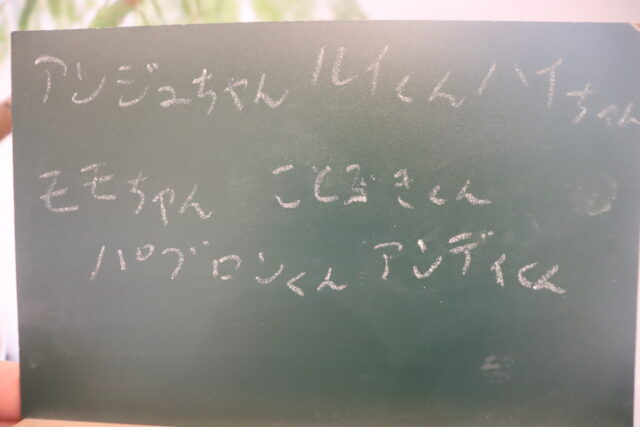 アンジュちゃん ルイくん ハイちゃん
モモちゃん ことぶきくん
パブロンくん アンディくん